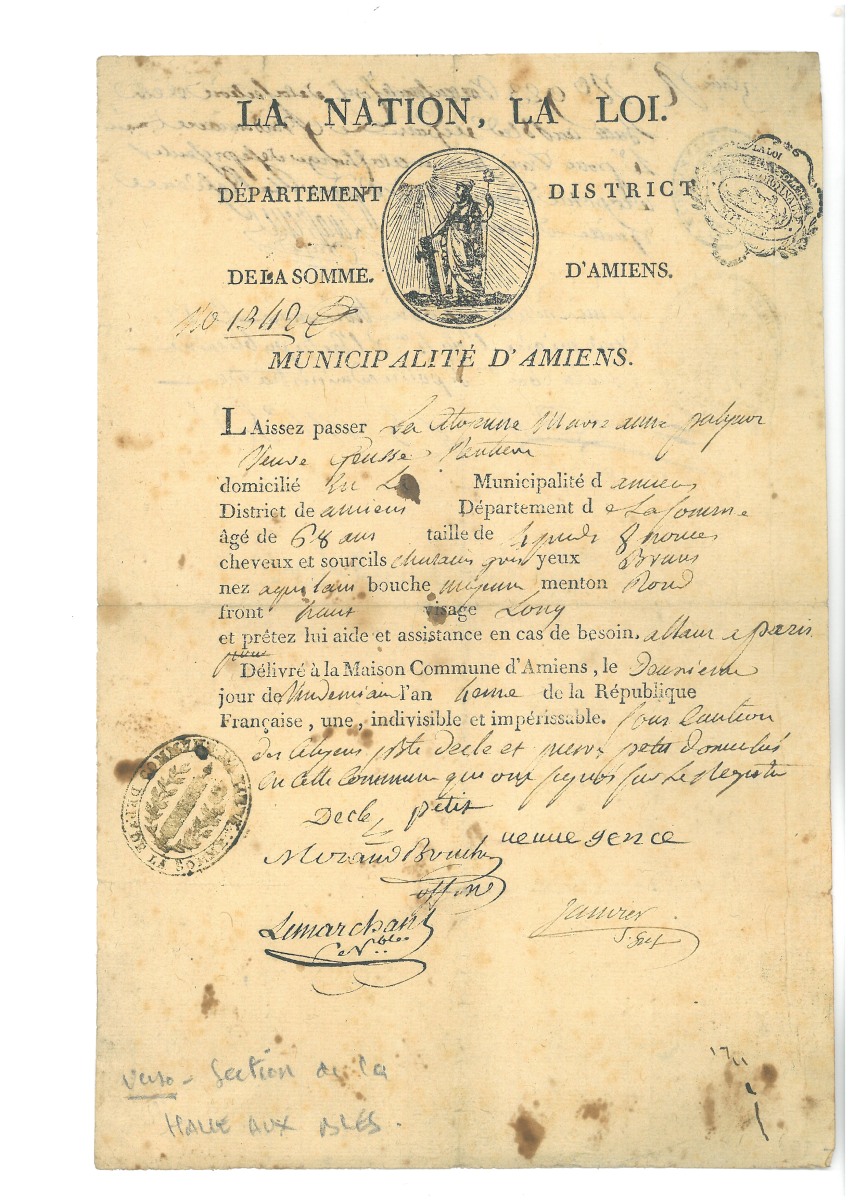 LA NATION, LA LOI.
DÉPARTEMENT DISTRICT
DE LA SOMME. D'AMIENS.
LA LOI
No 1342
MUNICIPALITÉ D'AMIENS.
LAissez passer La Citoyenne Marie anne
Veuve Rentiere
domicilié en La Municipalité d amiens
District de amiens Département d e La Somme
âgé de 68 ans taille de 4 pieds 8 pouces
cheveux et sourcils chatains gris yeux Bruns
nez aquilain bouche moyenne menton Rond
front haut visage Long
et prêtez lui aide et assistance en cas de besoin. allant a paris
pour
Délivré à la Maison Commune d'Amiens, le
jour de Vindemiaire l'an de la République
Française, une, indivisible et impérissable. sous Caution
des Citoyens Decle et pierre petit domiciliés
en cette Commune qui ont signés sur Le Registre
Decle petit
veuve gence
Lemarchant
Nble
Janvier
S. Gref
DE LA SOMME
verso - Section de la
HALLE AUX BLÉS.